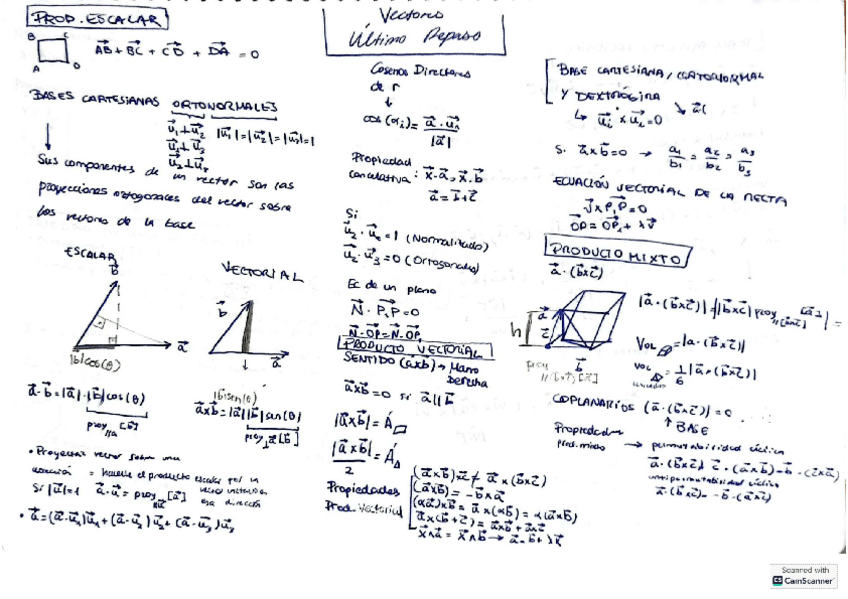 PROD. ESCALAR
B C
A D
AB + BC + CD + DA = 0
BASES CARTESIANAS ORTONORMALES
u₁⊥u₂ |u₁|=|u₂|=|u₃|=1
u₁⊥u₃
u₂⊥u₃
Sus componentes de un vector son las
proyecciones ortogonales del vector sobre
los vectores de la base
ESCALAR
b
a
|b|cos(θ)
a·b=|a|·|b|cos(θ)
proy//a [b]
VECTORIAL
b
a
|b|sen(θ)
a×b=|a||b|sen(θ)
proy⊥a[b]
• Proyectar vector sobre una
= hacerle el producto escalar por un
vector unitario en
esa dirección
Si |u|=1 a·u = proy//u [a]
• a=(a·u₁)u₁+(a·u₂)u₂+(a·u₃)u₃
Vectores
Último Repaso
Cosenos Directores
de r
cos(αi)= a·ui / |a|
Propiedad
cancelativa: x·a=x·b
a=b+c
Si
= 1 (Normalizado)
u₂·u₃=0 (Ortogonales)
Ec de un plano
N·P₁P=0
N·OP=N·OP₁
PRODUCTO VECTORIAL
SENTIDO (a×b) → Mano
Derecha
a×b=0 si a||b
|a×b|=Á▱
|a×b|/2=Á△
Propiedades
Prod. Vectorial
(a×b)×c ≠ a×(b×c)
(a×b)=-b×a
(αa)×b=a×(αb)=α(a×b)
a×(b+c)=a×b+a×c
x∧a=x∧b→a=b+λx
BASE CARTESIANA, ORTONORMAL
Y DEXTRÓGIRA
ui×ui=0
Si a×b=0 → a₁/b₁=a₂/b₂=a₃/b₃
ECUACIÓN VECTORIAL DE LA RECTA
v×P₁P=0
OP=OP₁+λv
PRODUCTO MIXTO
a·(b×c)
h
a
c
b
proy
//(b×c) [a]
|a·(b×c)|=|b×c| proy//[b×c] [a] =
Vol=|a·(b×c)|
Vol=1/6|a·(b×c)|
COPLANARIOS (a·(b×c))=0
BASE
Propiedades
prod. mixto → permutabilidad cíclica
a·(b×c)=c·(a×b)=b·(c×a)
antipermutabilidad cíclica
a·(b×c)=-b·(a×c)
Scanned with
CS CamScanner